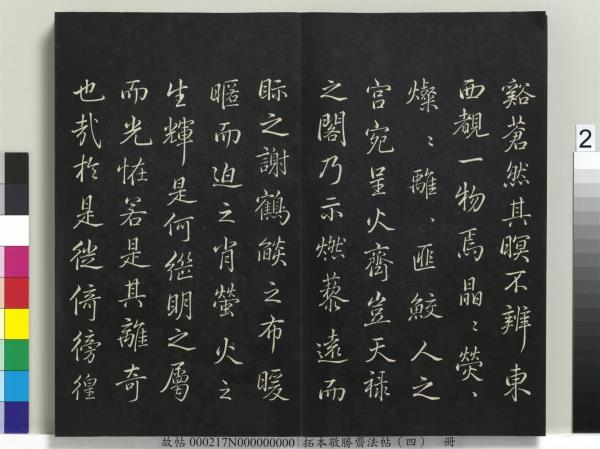 谿蒼然其暝不辨東
西覩一物焉晶〻熒〻
燦〻離〻匪鮫人之
宮宛呈火齊豈天祿
之閣乃示燃藜遠而
眎之謝鶴燄之布暖
暱而迫之肖螢火之
生輝是何繼明之屬
而光恠若是其離奇
也哉於是徙倚徬徨
故帖 000217N000000000 拓本敬勝齋法帖(四) 冊
2